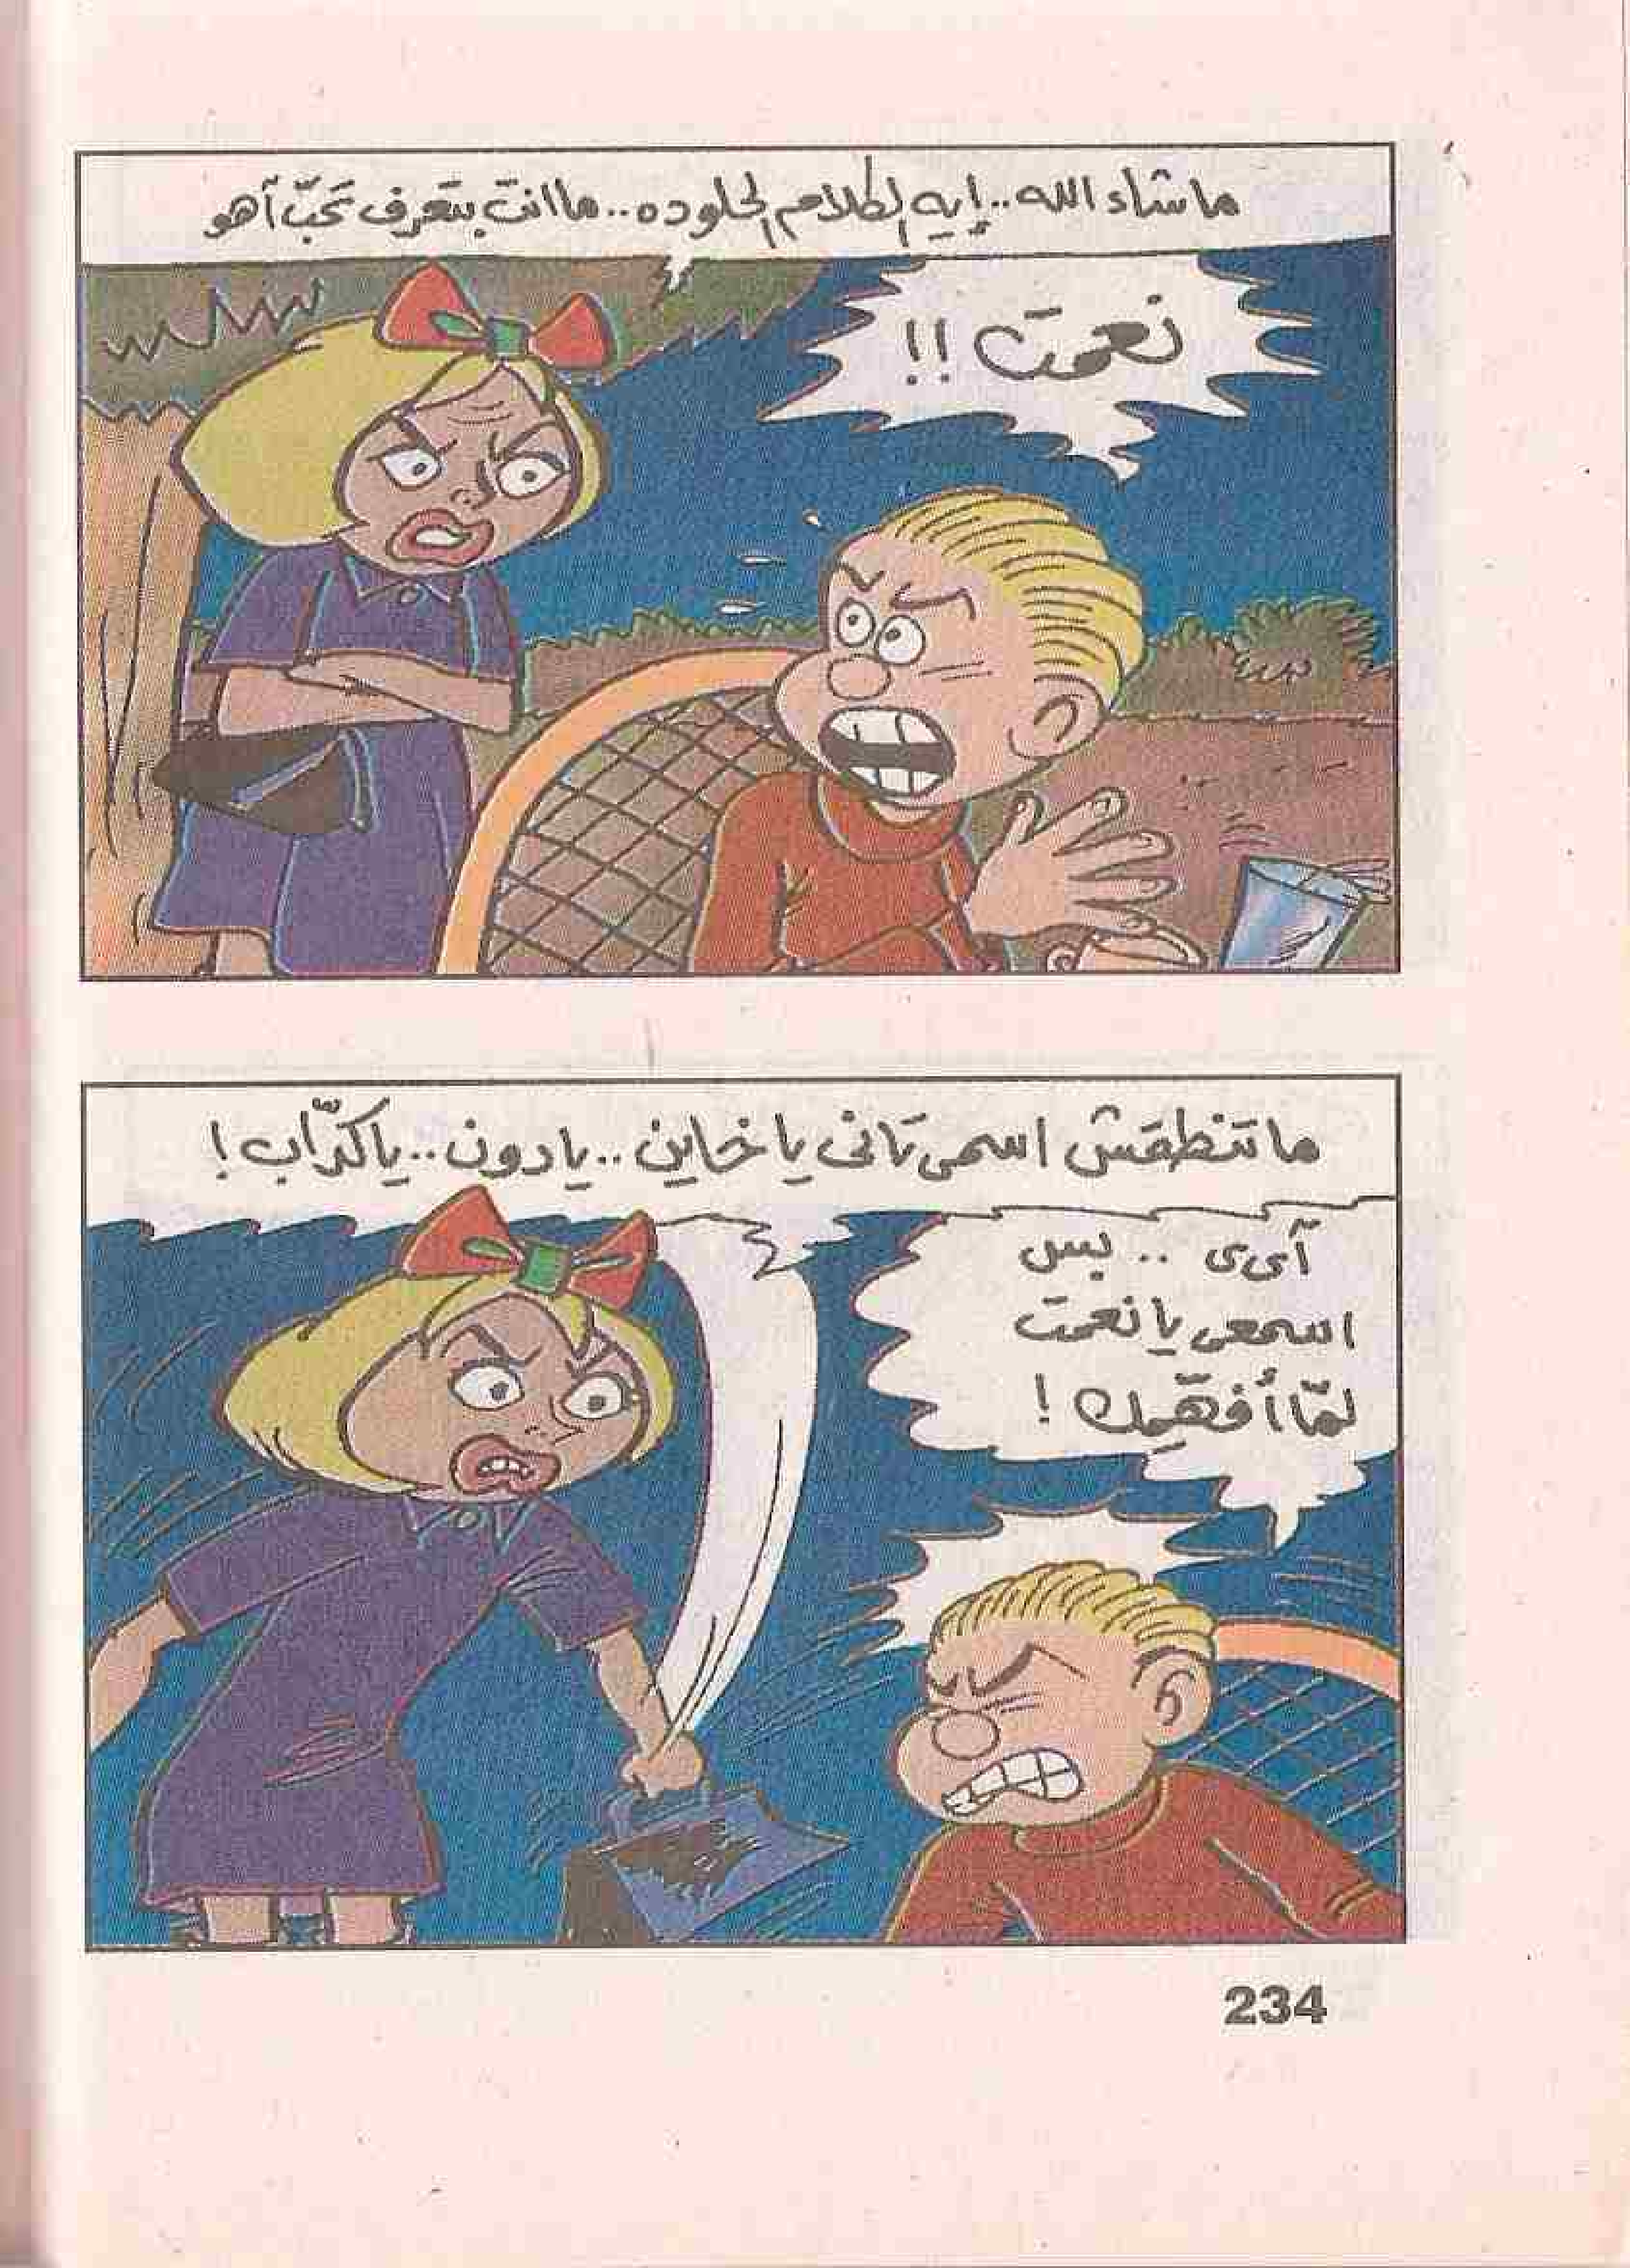 ما شاء الله.. إيه الكلام الحلو ده.. ما انت بتعرف تحبّ آهو
نعمت !!
ما تنطقش اسمى تانى يا خاين.. يا دون.. يا كدّاب !
آىى .. بس
اسمعى يا نعمت
لمّا أفهّمك !
234